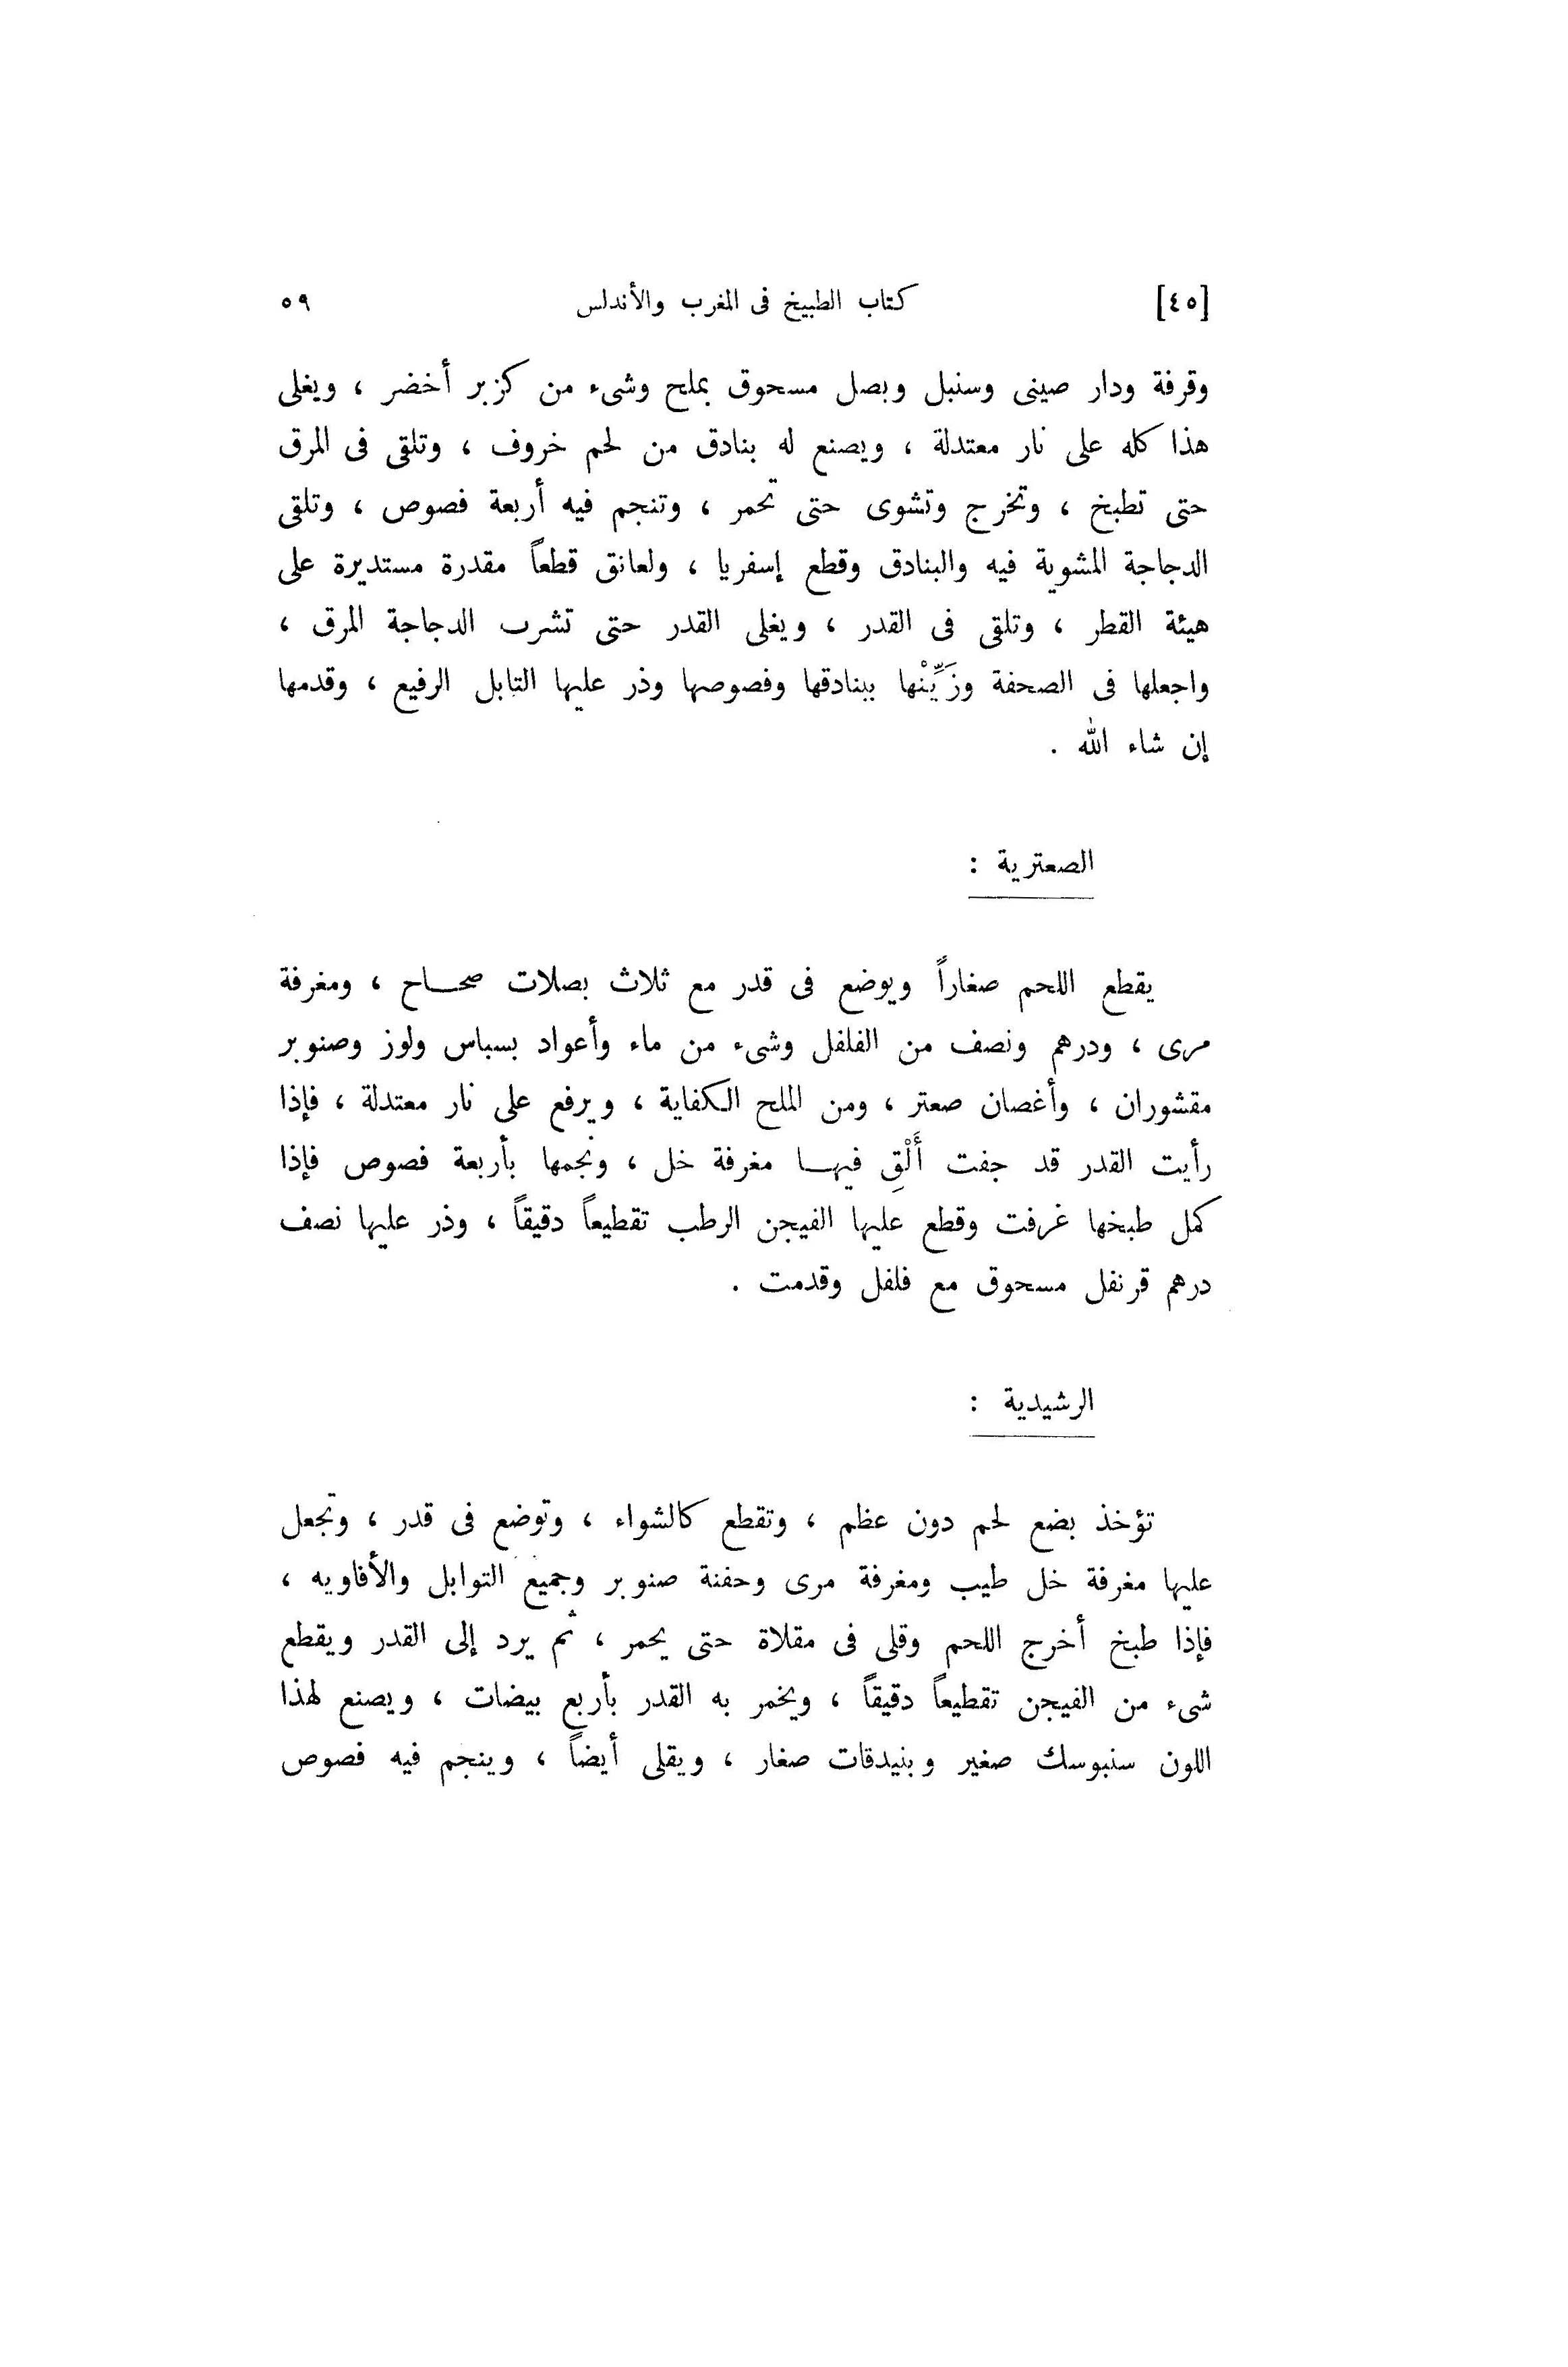 [٤٥] كتاب الطبيخ فى المغرب والأندلس ٥٩
وقرفة ودار صينى وسنبل وبصل مسحوق بملح وشىء من كزبر أخضر ، ويغلى
هذا كله على نار معتدلة ، ويصنع له بنادق من لحم خروف ، وتلقى فى المرق
حتى تطبخ ، وتخرج وتشوى حتى تحمر ، وتنجم فيه أربعة فصوص ، وتلقى
الدجاجة المشوية فيه والبنادق وقطع إسفريا ، ولعانق قطعاً مقدرة مستديرة على
هيئة القطر ، وتلقى فى القدر ، ويغلى القدر حتى تشرب الدجاجة المرق ،
واجعلها فى الصحفة وزَيِّنْها ببنادقها وفصوصها وذر عليها التابل الرفيع ، وقدمها
إن شاء الله .
الصعترية :
يقطع اللحم صغاراً ويوضع فى قدر مع ثلاث بصلات صحاح ، ومغرفة
مرى ، ودرهم ونصف من الفلفل وشىء من ماء وأعواد بسباس ولوز وصنوبر
مقشوران ، وأغصان صعتر ، ومن الملح الكفاية ، ويرفع على نار معتدلة ، فإذا
رأيت القدر قد جفت أَلْقِ فيها مغرفة خل ، ونجمها بأربعة فصوص فإذا
كمل طبخها غرفت وقطع عليها الفيجن الرطب تقطيعاً دقيقاً ، وذر عليها نصف
درهم قرنفل مسحوق مع فلفل وقدمت .
الرشيدية :
تؤخذ بضع لحم دون عظم ، وتقطع كالشواء ، وتوضع فى قدر ، وتجعل
عليها مغرفة خل طيب ومغرفة مرى وحفنة صنوبر وجميع التوابل والأفاويه ،
فإذا طبخ أخرج اللحم وقلى فى مقلاة حتى يحمر ، ثم يرد إلى القدر ويقطع
شىء من الفيجن تقطيعاً دقيقاً ، ويخمر به القدر بأربع بيضات ، ويصنع لهذا
اللون سنبوسك صغير وبنيدقات صغار ، ويقلى أيضاً ، وينجم فيه فصوص